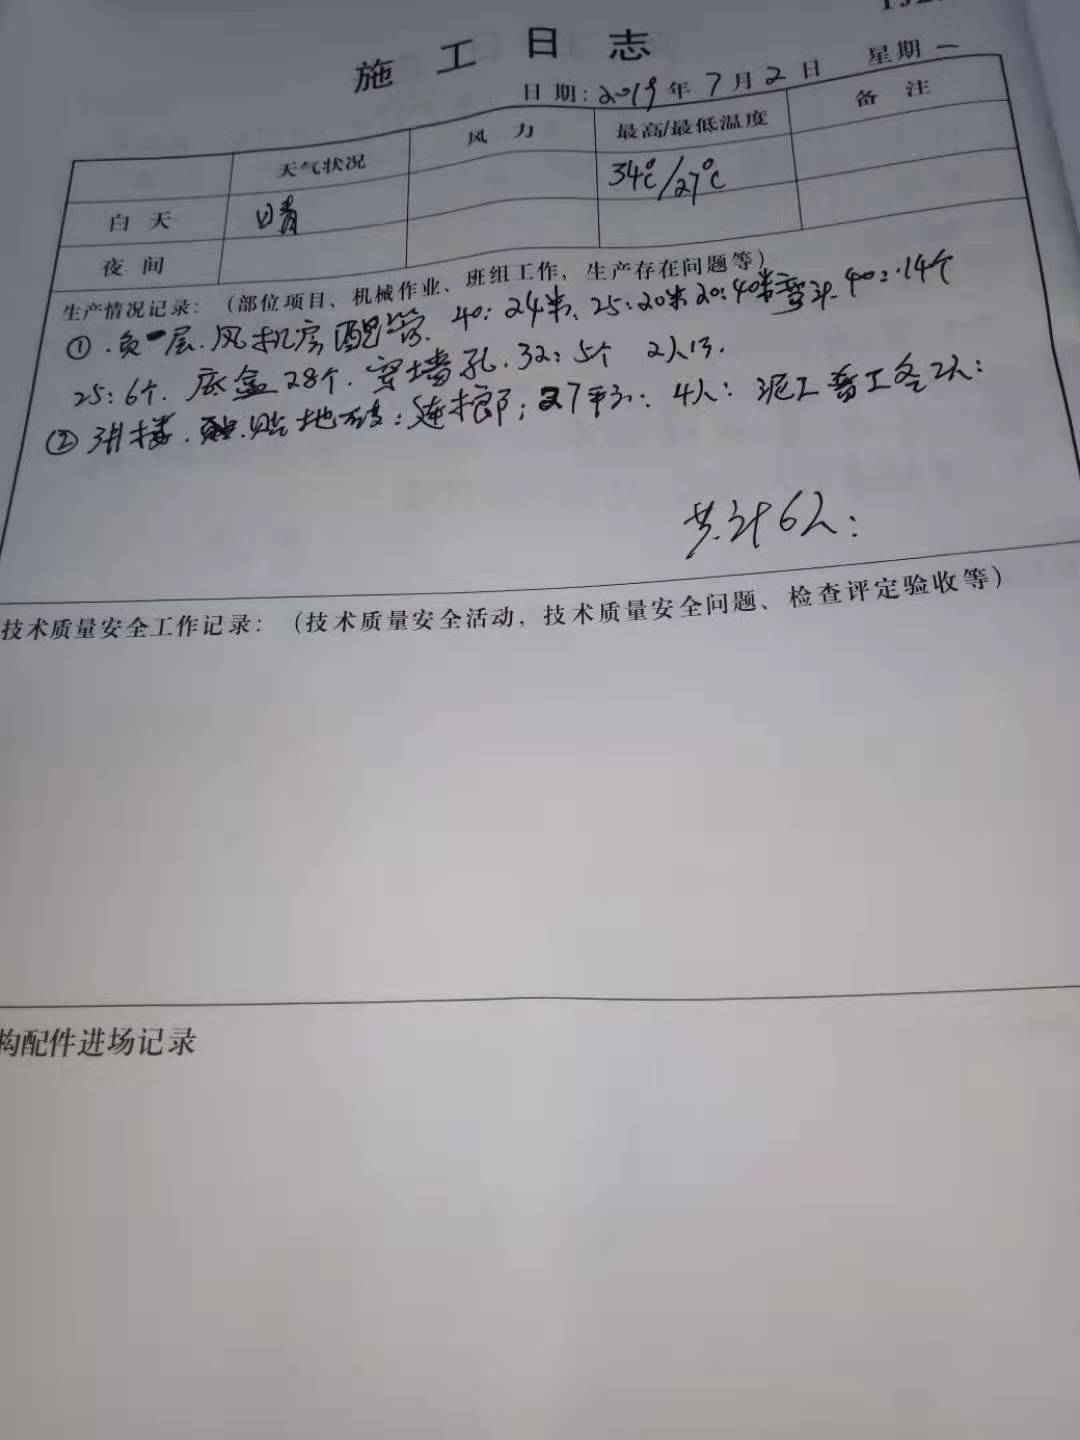 施工日志
日期：2019年7月2日 星期一
天气状况 风力 最高/最低温度 备注
白天 晴 34℃/27℃
夜间
生产情况记录：（部位项目、机械作业、班组工作，生产存在问题等）
①.负一层.风机房配管.40：24米、25：20米20：40米弯斗.40：.14个
25：6个.底盒28个.穿墙孔.32：5个 2人工.
②3#楼.贴地砖：连廊；27平方：4人：泥工普工各2人：
共计6人：
技术质量安全工作记录：（技术质量安全活动，技术质量安全问题、检查评定验收等）
构配件进场记录